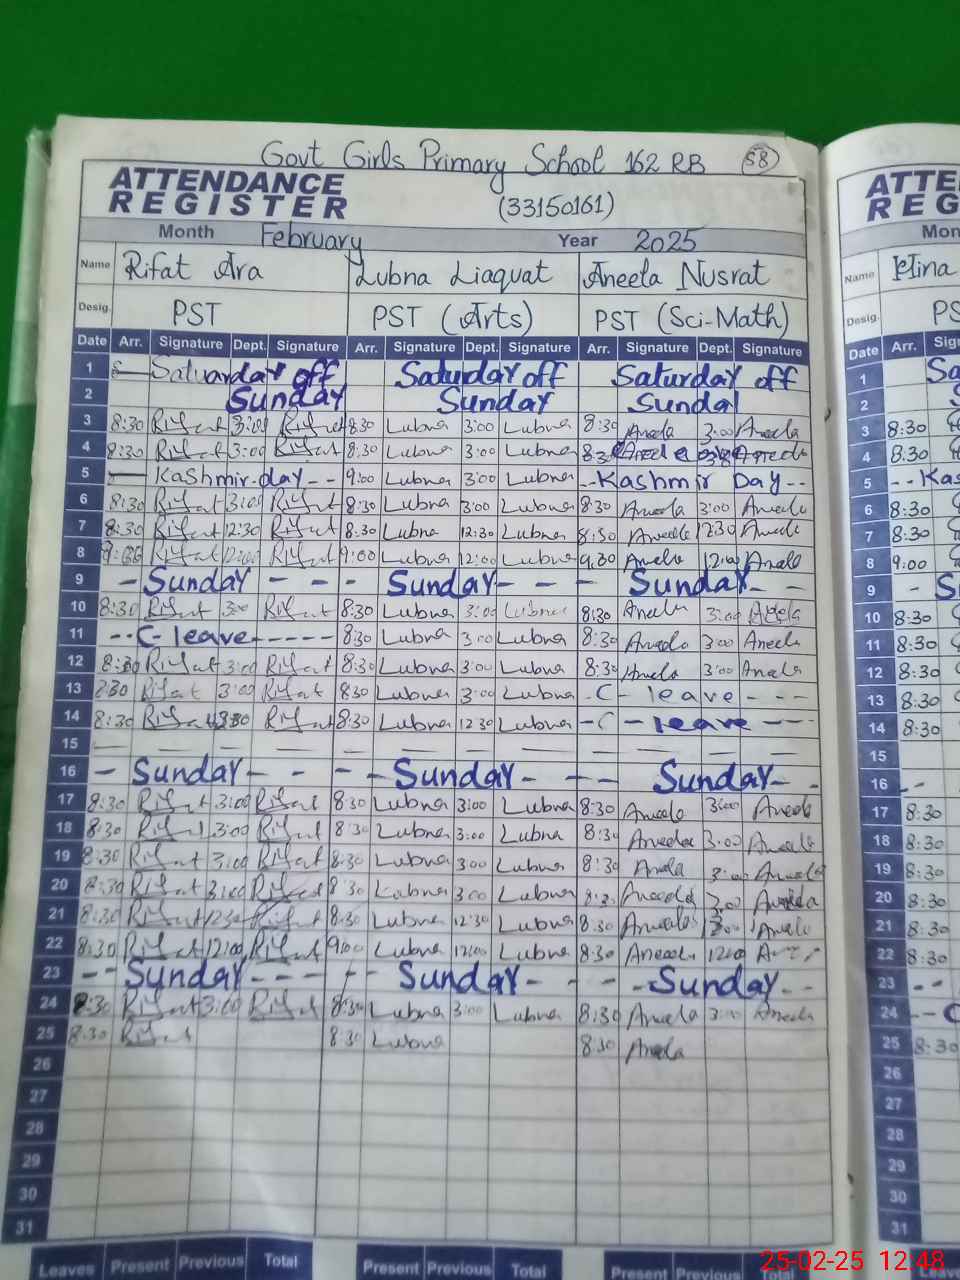 Govt Girls Primary School 162 RB 58
ATTENDANCE
REGISTER
(33150161)
Month February Year 2025
Name Rifat Ara Lubna Liaquat Aneela Nusrat
Desig. PST PST (Arts) PST (Sci-Math)
Date Arr. Signature Dept. Signature Arr. Signature Dept. Signature Arr. Signature Dept. Signature
1 Saturday off Saturday off Saturday off
2 Sunday Sunday Sunda
3 8:30 Rifat 3:00 Rifat 8:30 Lubna 3:00 Lubna 8:30 Aneela 3:00 Aneela
4 8:30 Rifat 3:00 Rifat 8:30 Lubna 3:00 Lubna 8:30 Aneela Aneela
5 Kashmir day - - 9:00 Lubna 3:00 Lubna - - Kashmir Day - -
6 8:30 Rifat 3:00 Rifat 8:30 Lubna 3:00 Lubna 8:30 Aneela 3:00 Aneela
7 8:30 Rifat 12:30 Rifat 8:30 Lubna 12:30 Lubna 8:30 Aneela 12:30 Aneela
8 Rifat 12:00 Rifat 9:00 Lubna 12:00 Lubna 9:00 Aneela 12:00 Aneela
9 - Sunday - - - - Sunday - - - Sunday - -
10 8:30 Rifat 3:00 Rifat 8:30 Lubna 3:00 Lubna 8:30 Aneela 3:00 Aneela
11 - - C - leave - - - - - 8:30 Lubna 3:00 Lubna 8:30 Aneela 3:00 Aneela
12 8:30 Rifat 3:00 Rifat 8:30 Lubna 3:00 Lubna 8:30 Aneela 3:00 Aneela
13 Rifat 3:00 Rifat 8:30 Lubna 3:00 Lubna - C - leave - - -
14 8:30 Rifat Rifat 8:30 Lubna 12:30 Lubna - C - leave - - -
15
16 - Sunday - - - - Sunday - - - Sunday -
17 8:30 Rifat 3:00 Rifat 8:30 Lubna 3:00 Lubna 8:30 Aneela 3:00 Aneela
18 8:30 Rifat 3:00 Rifat 8:30 Lubna 3:00 Lubna 8:30 Aneela 3:00 Aneela
19 8:30 Rifat 3:00 Rifat 8:30 Lubna 3:00 Lubna 8:30 Aneela 3:00 Aneela
20 8:30 Rifat 3:00 Rifat 8:30 Lubna 3:00 Lubna 8:30 Aneela 3:00 Aneela
21 8:30 Rifat 12:30 Rifat 8:30 Lubna 12:30 Lubna 8:30 Aneela Aneela
22 8:30 Rifat 12:00 Rifat 9:00 Lubna 12:00 Lubna 8:30 Aneela 12:00
23 - - Sunday - - - - - Sunday - - - Sunday - -
24 8:30 Rifat 3:00 Rifat 8:30 Lubna 3:00 Lubna 8:30 Aneela 3:00 Aneela
25 8:30 Rifat 8:30 Lubna 8:30 Aneela
26
27
28
29
30
31
Leaves Present Previous Total Present Previous Total Present Previous Total
ATTE
REG
Mon
Name Hina
Desig. PS
Date Arr. Sign
1 Sa
2 S
3 8:30
4 8:30
5 - - Kas
6 8:30
7 8:30
8 9:00
9 - S
10 8:30
11 8:30
12 8:30
13 8:30
14 8:30
15
16 - -
17 8:30
18 8:30
19 8:30
20 8:30
21 8:30
22 8:30
23 - -
24 - - C
25 8:30
26
27
28
29
30
31
25-02-25 12:48